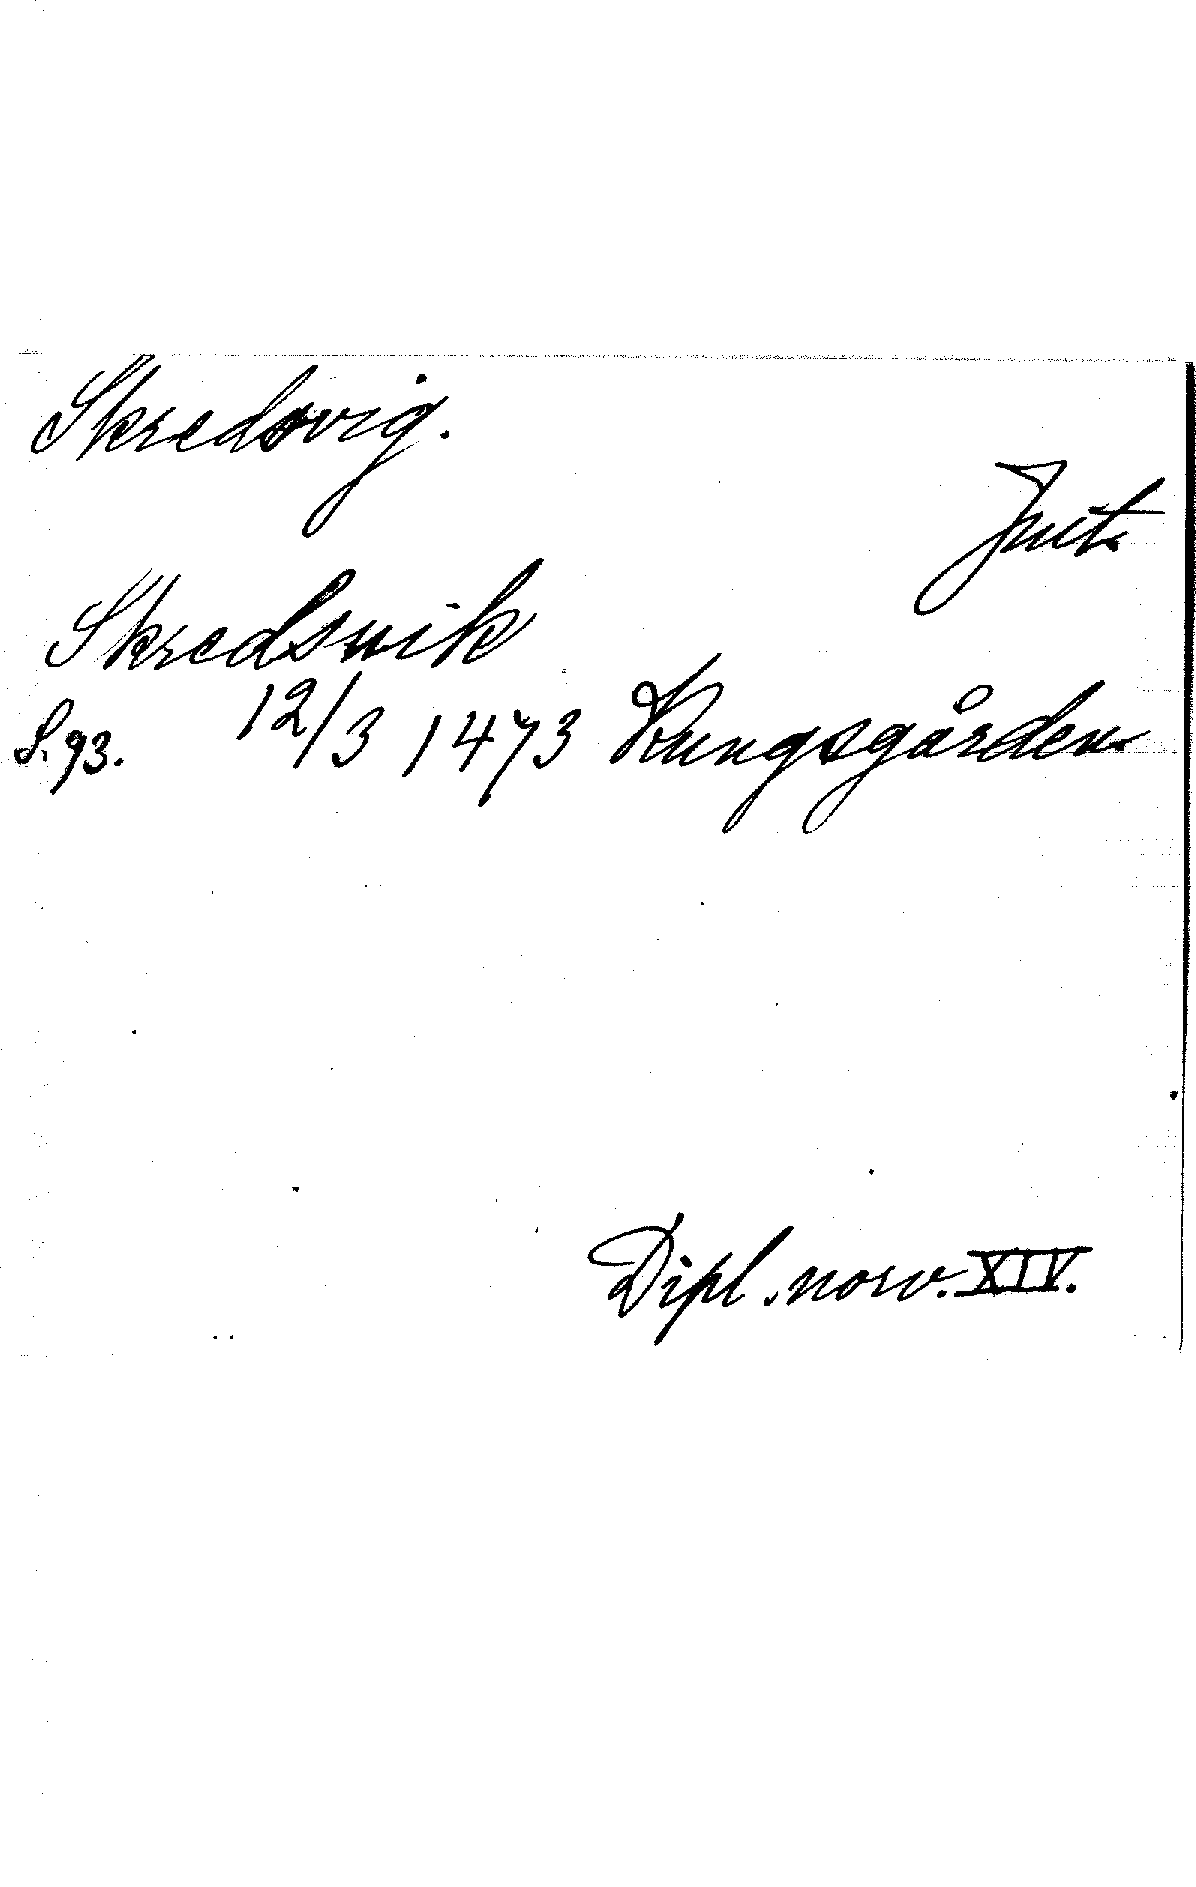 Skredsvig.
Skredsvik
S. 93. 12/3 1473 Kungsgården
Dipl. norv. XIV.